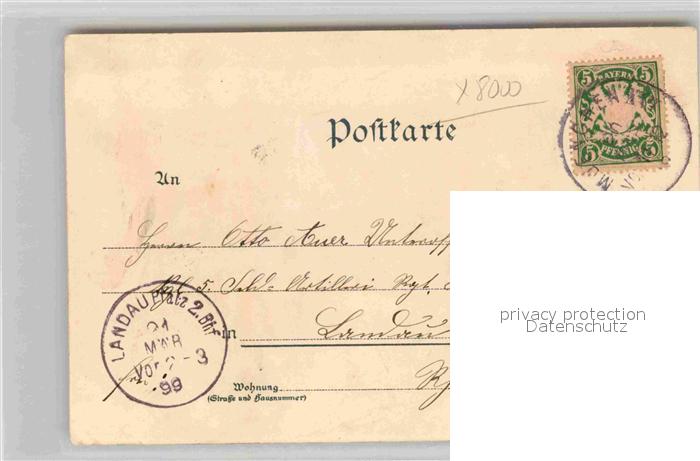 x 8000
5 BAYERN 5
5 PFENNIG 5
Postkarte
An
Herrn Otto Auer Unteroff
Kgl. 5. Feld-Artillerie Rgt.
in Landau
LANDAU Pfalz 2. Bhf
21
MAR
Vor 2-3
99
Wohnung
(Straße und Hausnummer)
privacy protection
Datenschutz